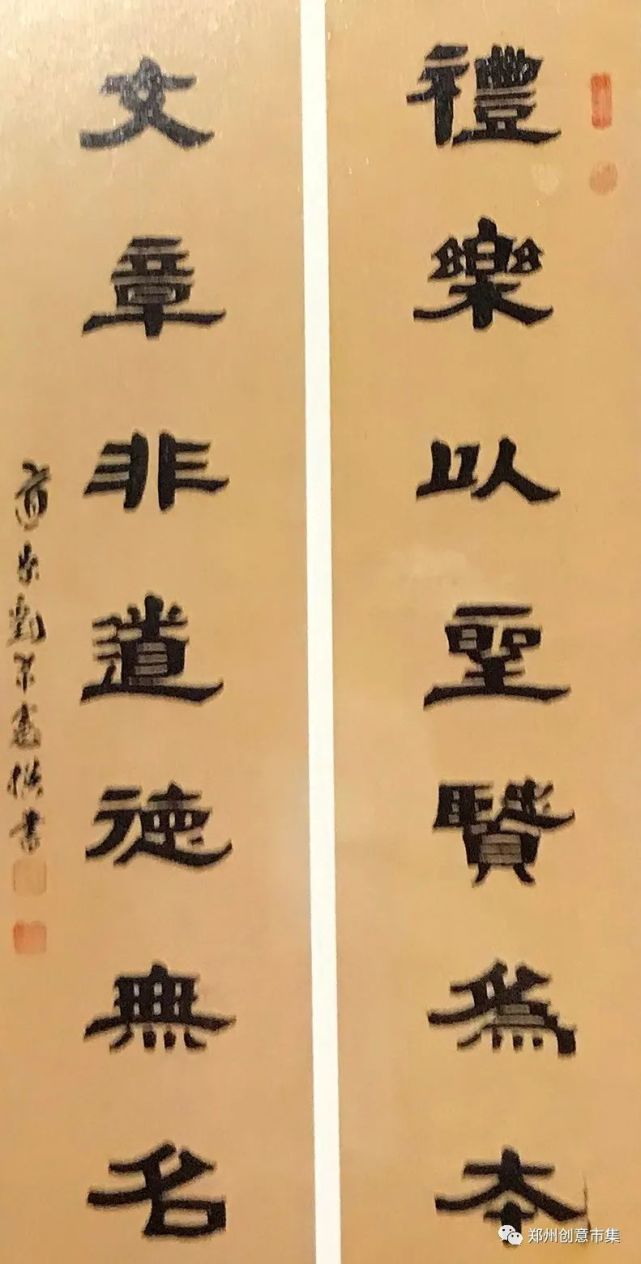 禮樂以聖賢為本
文章非道德無名
郑州创意市集